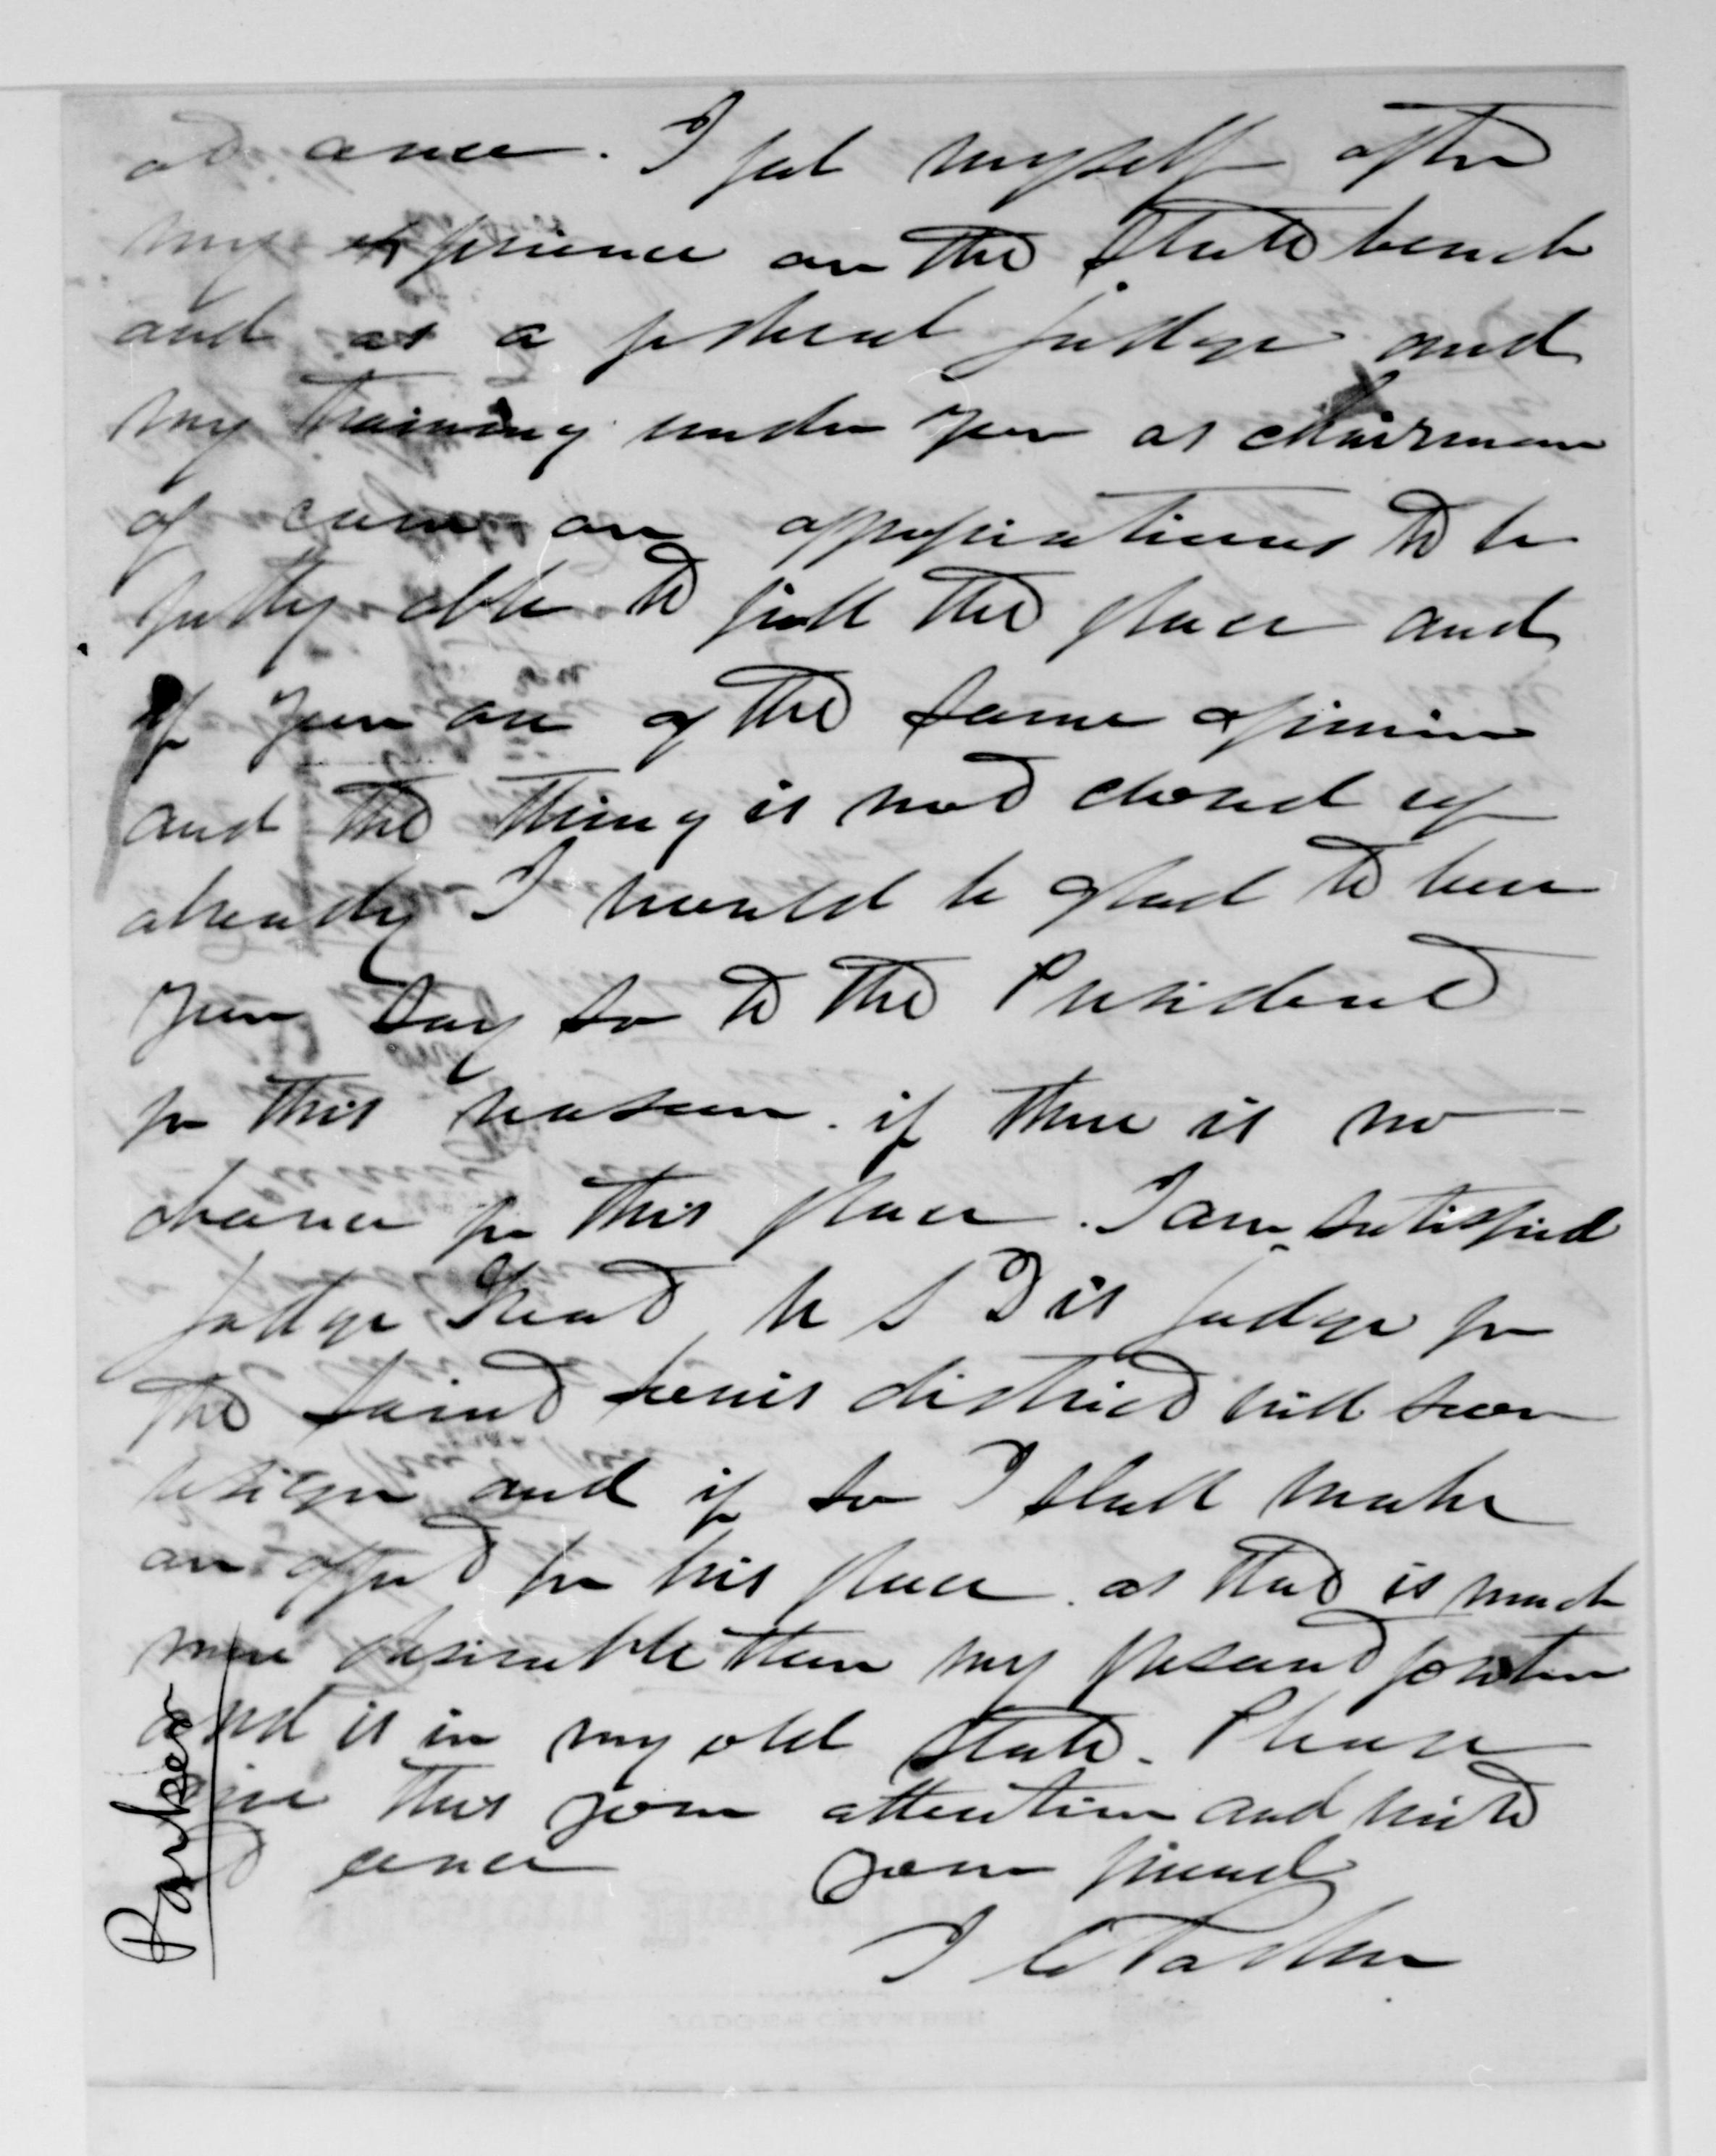 at once. I feel myself after
my experience on the State bench
and as a federal judge and
my training under you as chairman
of com on appropriations to be
fully able to fill the place and
If you are of the same opinion
and the thing is not closed up
already I would be glad to have
you say so to the President
for this reason. if there is no
chance for this place. I am satisfied
judge Treat U S Dis judge for
the Saint Louis district will soon
resign and if so I shall make
an effort for his place. as that is much
more desirable than my present position
and is in my old State. Please
give this your attention and write
at once your friend
I C Parker
Parker